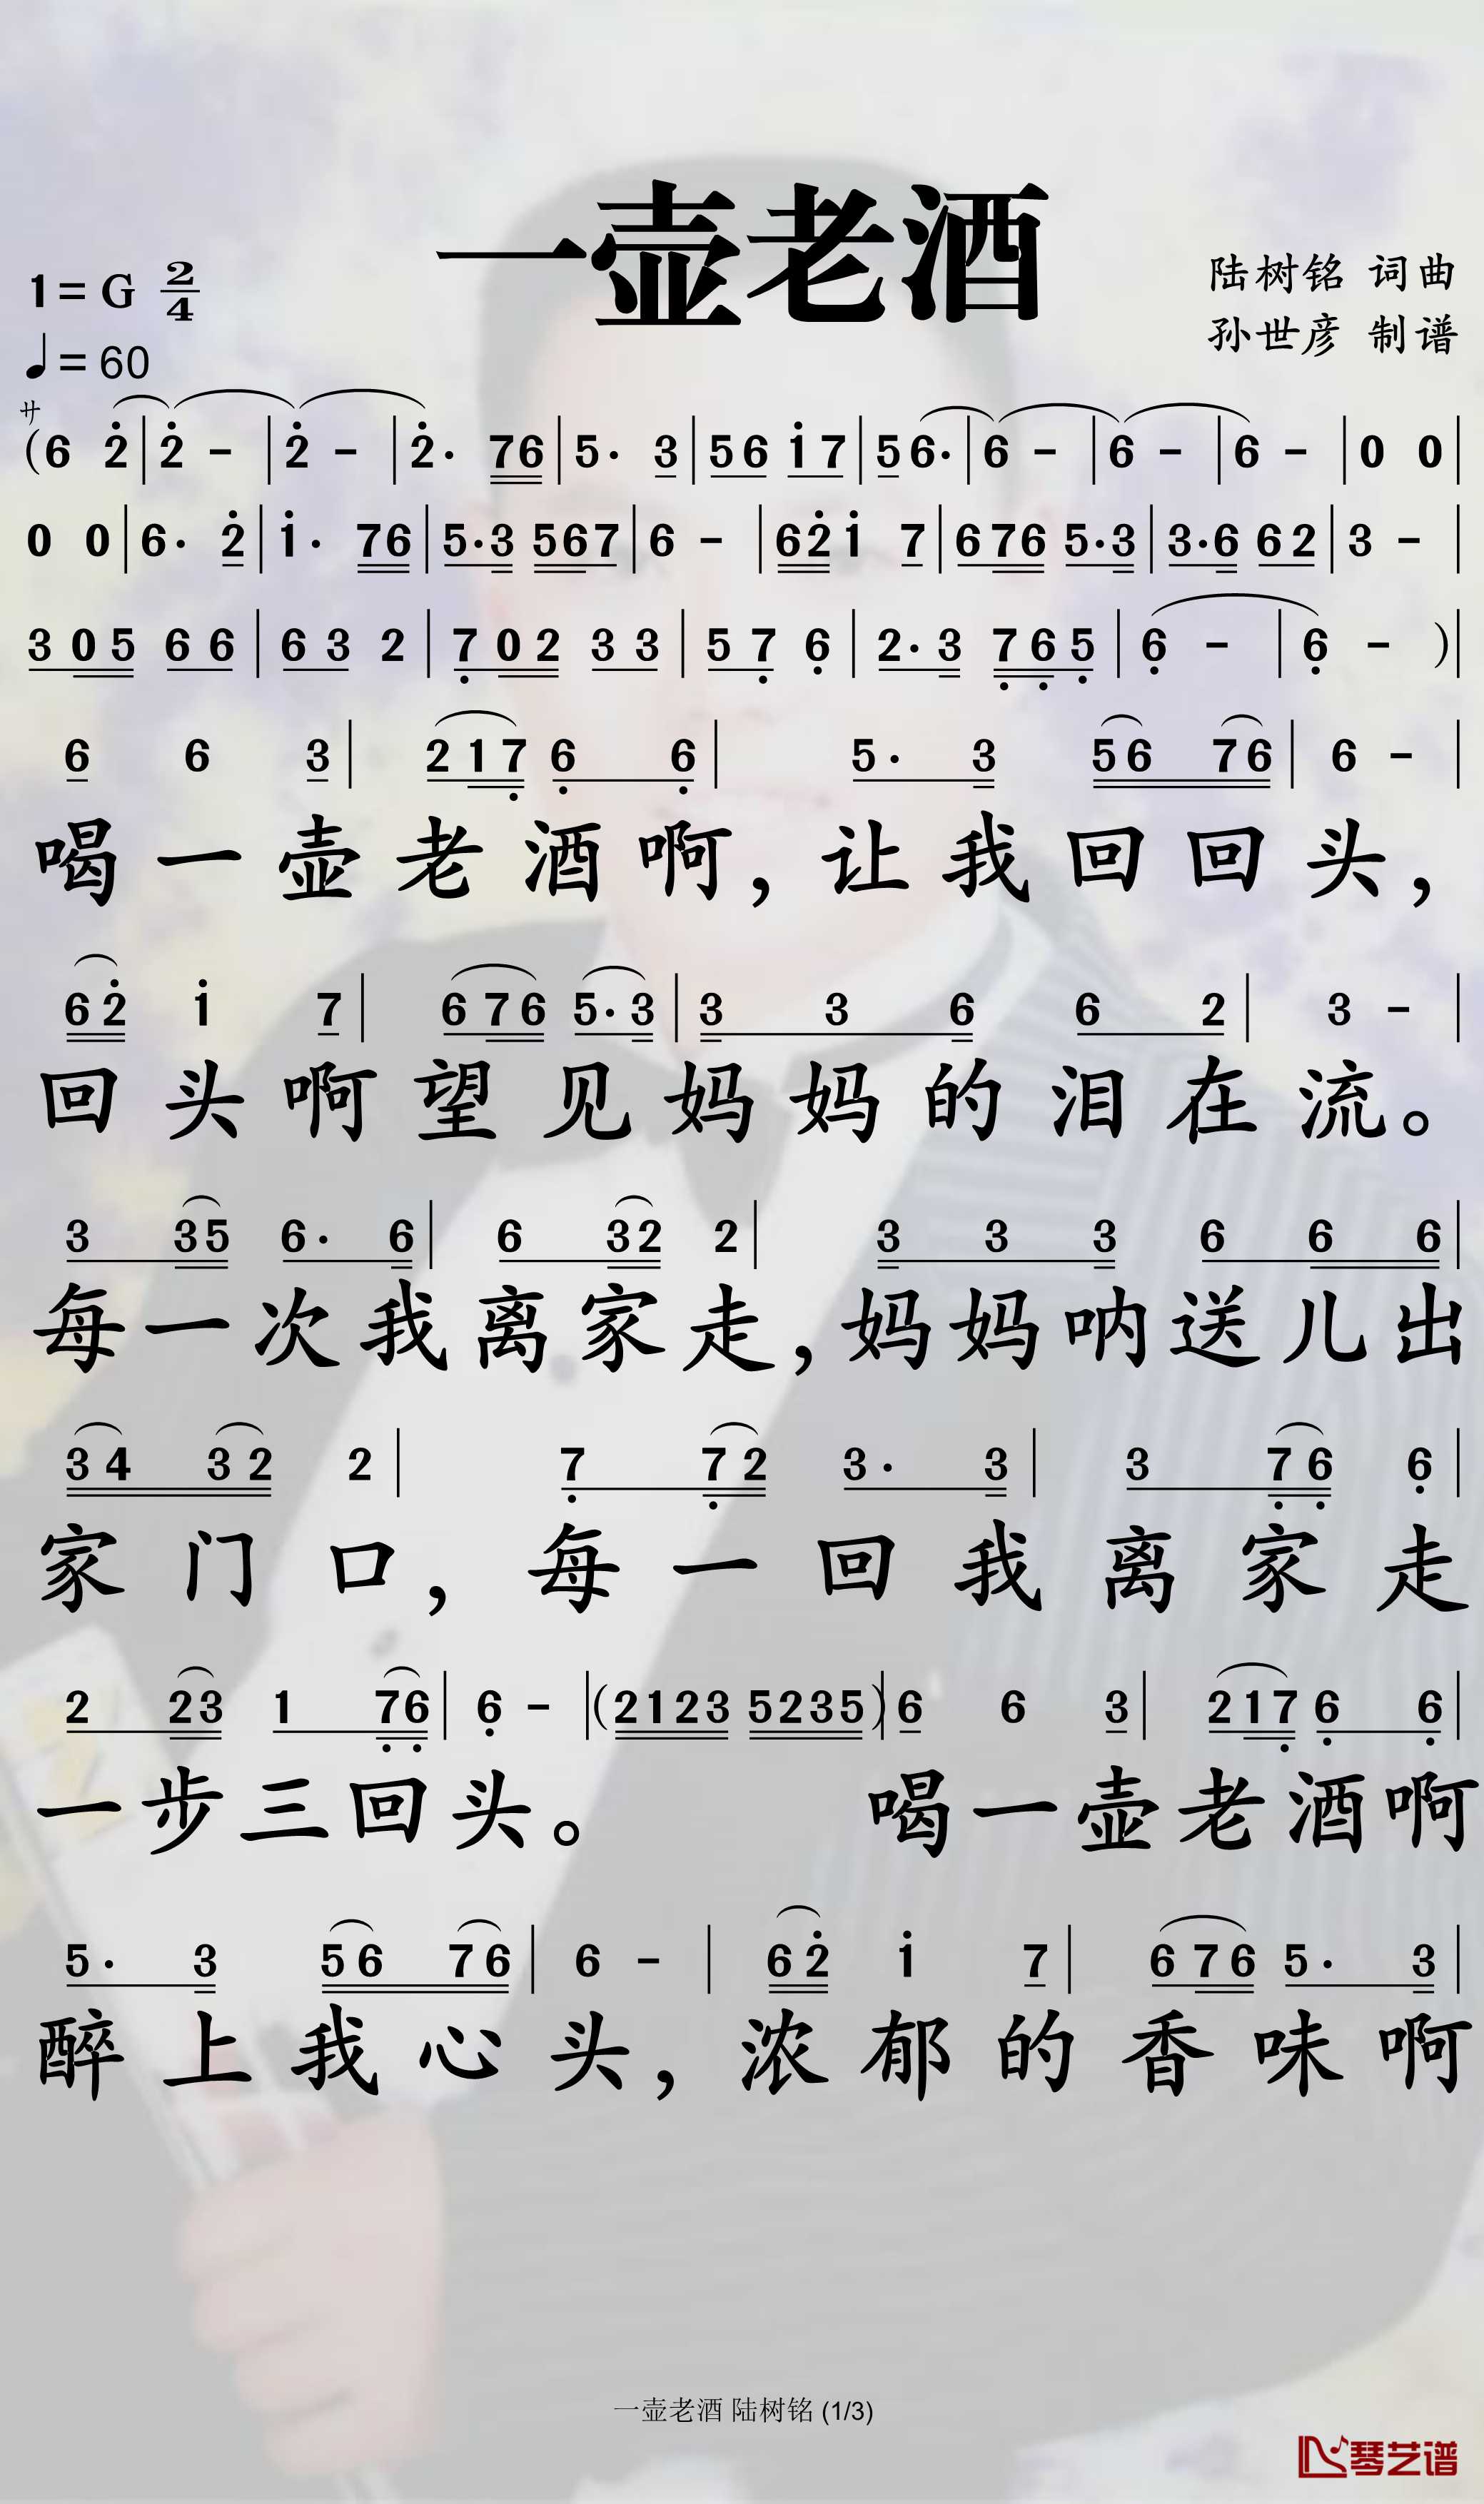 一壶老酒
陆树铭 词曲
孙世彦 制谱
1=G 2/4
♩=60
サ
(6 2̇|2̇ -|2̇ -|2̇· 76|5· 3|56 1̇7|56·|6 -|6 -|6 -|0 0|
0 0|6· 2̇|1̇· 76|5·3 567|6 -|62̇1̇ 7|676 5·3|3·6 62|3 -|
3 05 66|63 2|7̣ 02 33|57̣ 6̣|2·3 7̣6̣5̣|6̣ -|6̣ -)|
6 6 3|217̣ 6̣ 6̣|5· 3 56 76|6 -|
喝一壶老酒啊，让我回回头，
62̇ 1̇ 7|676 5·3|3 3 6 6 2|3 -|
回头啊望见妈妈的泪在流。
3 35 6· 6|6 32 2|3 3 3 6 6 6|
每一次我离家走，妈妈呐送儿出
34 32 2|7̣ 7̣2 3· 3|3 7̣6̣ 6̣|
家门口，每一回我离家走
2 23 1 7̣6̣|6̣ -|(2123 5235)|6 6 3|217̣ 6̣ 6̣|
一步三回头。 喝一壶老酒啊
5· 3 56 76|6 -|62̇ 1̇ 7|676 5· 3|
醉上我心头，浓郁的香味啊
一壶老酒 陆树铭 (1/3)
琴艺谱